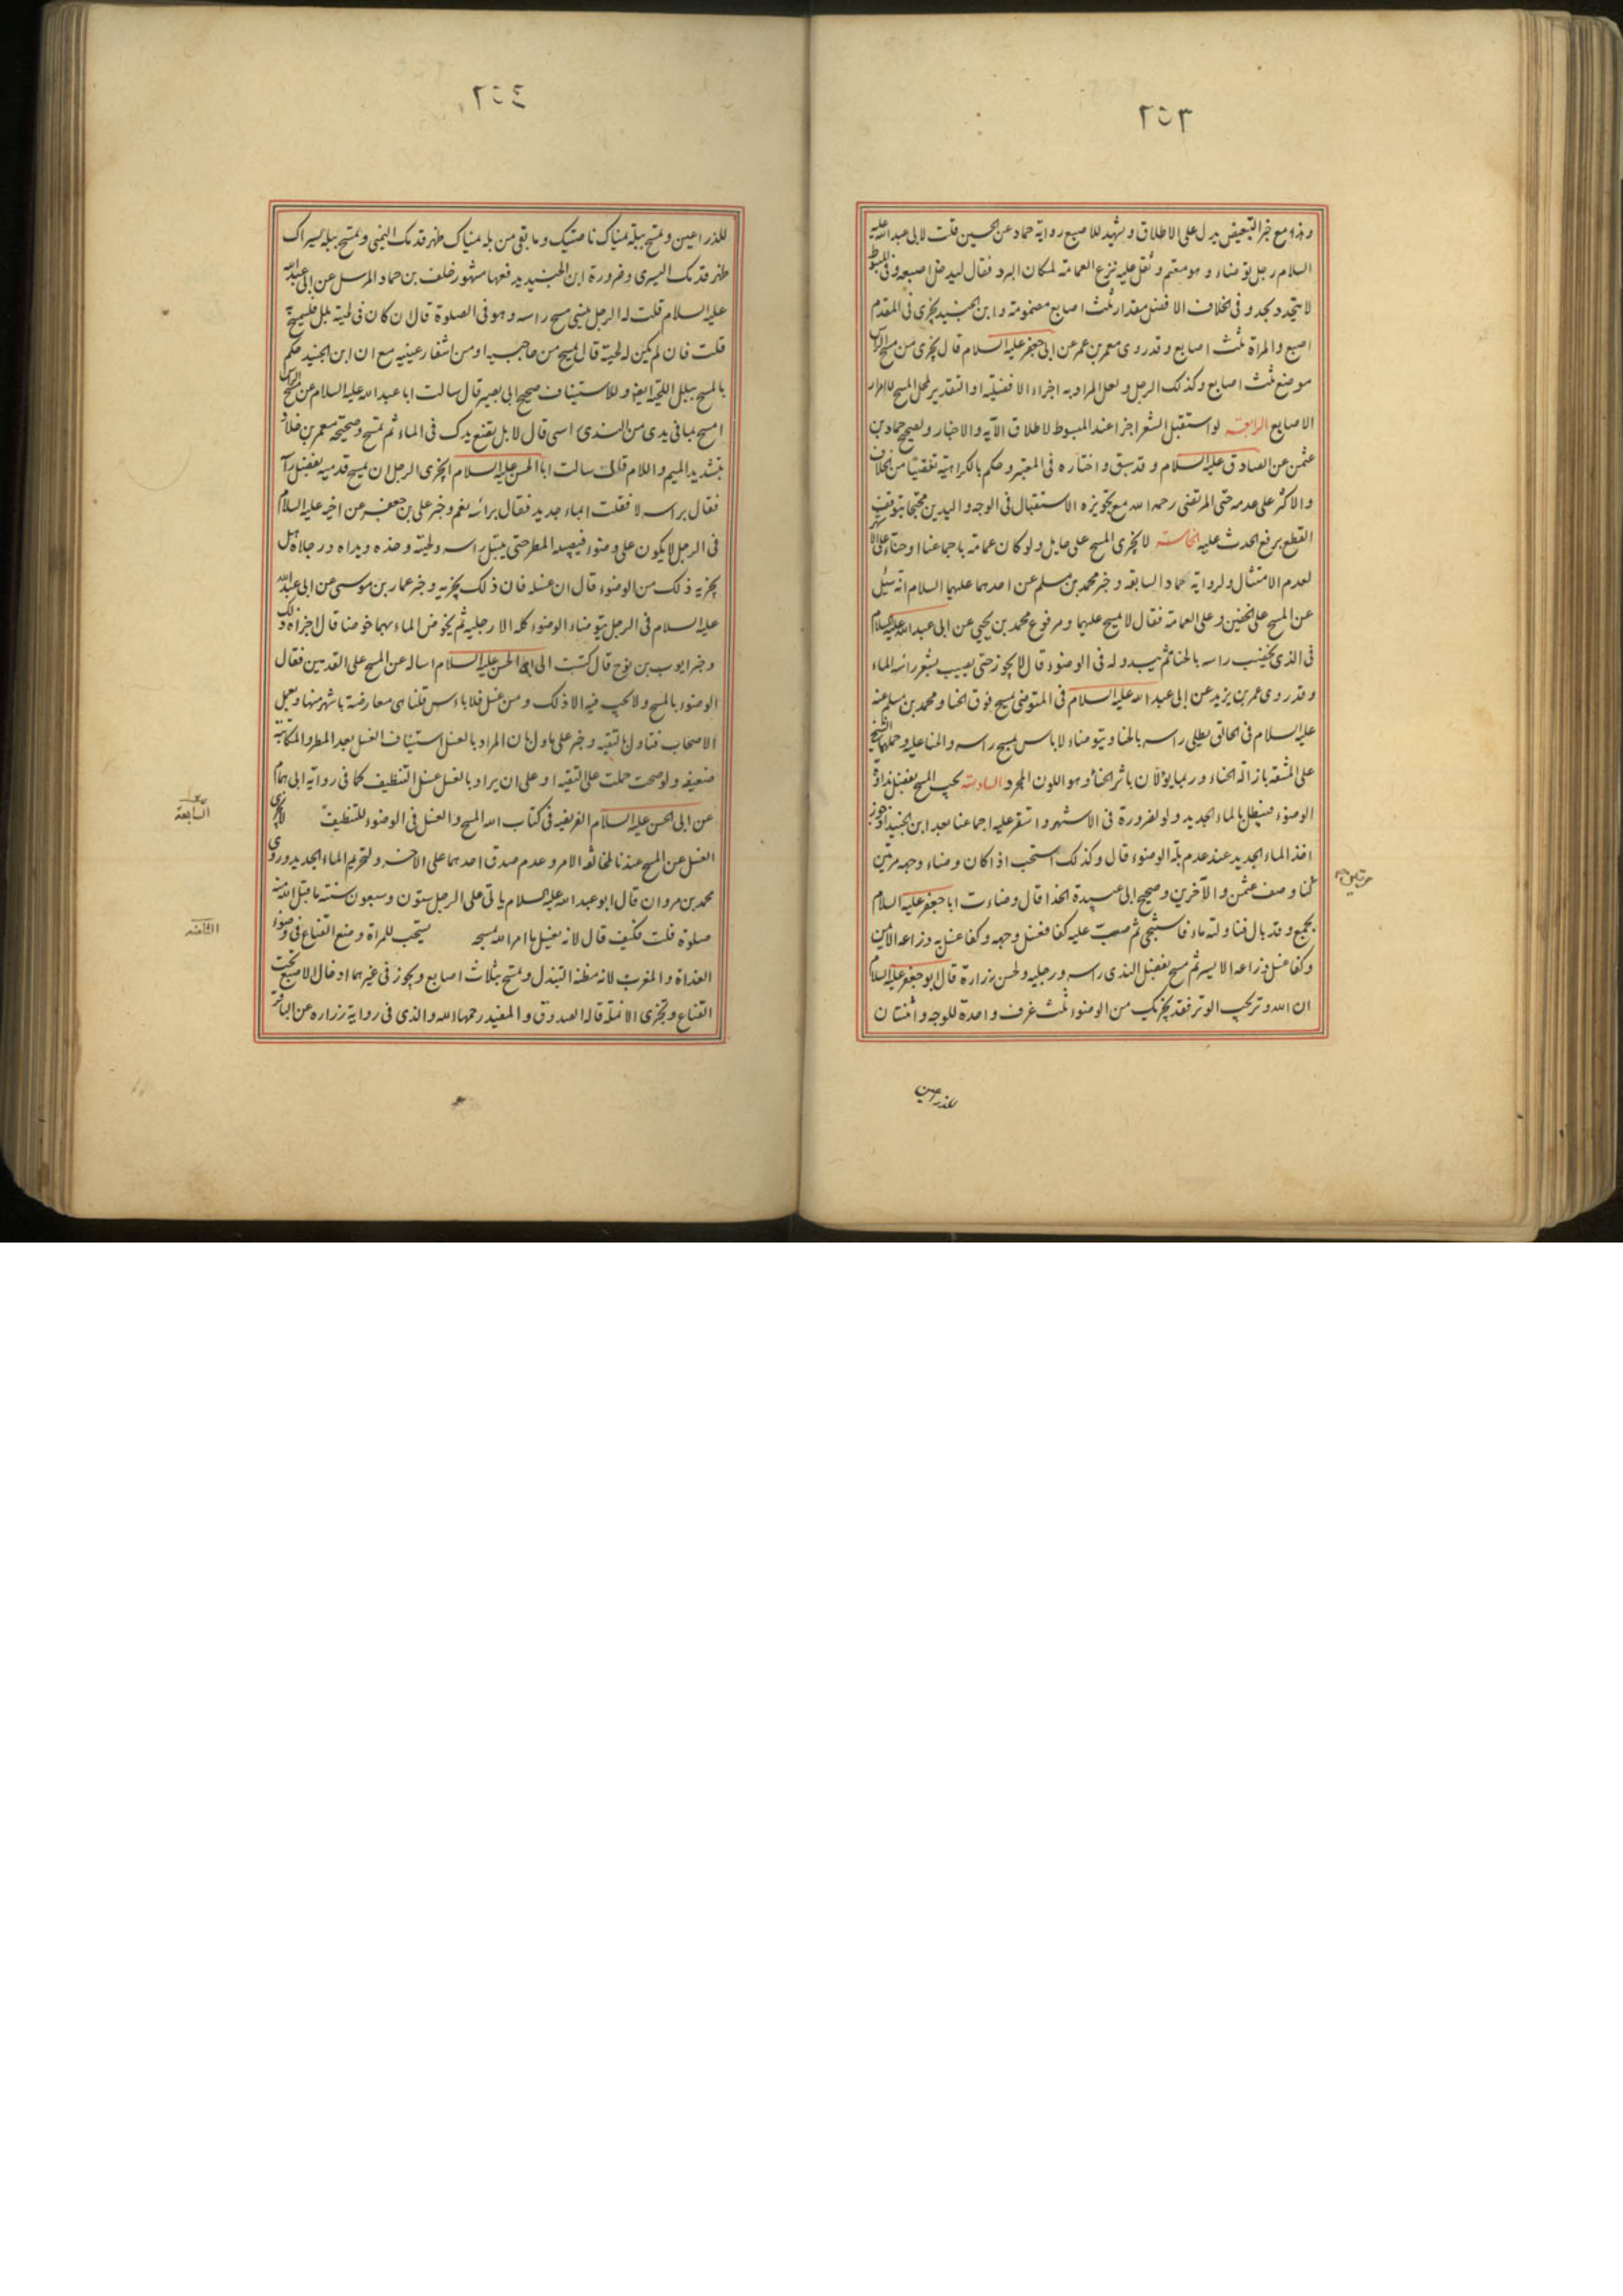 ٢٥٣
وهذا مع خبر التبعيض يدل على الاطلاق ويشهد للاصبع رواية حماد عن الحسين قلت لابى عبد الله عليه
السلام رجل توضاء وهو معتم وثقل عليه نزع العمامة لمكان البرد فقال ليدخل اصبعه وفى المبسوط
لا يتحدد بحد وفى الخلاف الافضل مقدار ثلث اصابع مضمومة وابن الجنيد يجزى فى المقدم
اصبع والمراة ثلث اصابع وقد روى معمر بن عمر عن ابى جعفر عليه السلام قال يجزى من مسح الراس
موضع ثلث اصابع وكذلك الرجل ولعل المراد به اجزاء الافضلية او التقدير لمحل المسح لا امرار
الاصابع الرابعة لو استقبل الشعر اجزا عند المبسوط لاطلاق الآية والاخبار ولصحيح حماد بن
عثمن عن الصادق عليه السلام وقد سبق واختاره فى المعتبر وحكم بالكراهية تفصيا من الخلاف
والاكثر على عدمه حتى المرتضى رحمه الله مع تجويزه الاستقبال فى الوجه واليدين محتجا بتوقف
القطع برفع الحدث عليه الخامسة لا يجزى المسح على حايل ولو كان عمامة باجماعنا او حناء على الاشهر
لعدم الامتثال ولرواية حماد السابقة وخبر محمد بن مسلم عن احدهما عليهما السلام انه سئل
عن المسح على الخفين وعلى العمامة فقال لا يمسح عليهما ومرفوع محمد بن يحيى عن ابى عبد الله عليه السلام
فى الذى يخضب راسه بالحنا ثم يبدو له فى الوضوء قال لا يجوز حتى يصيب بشر رائسه الماء
وقد روى عمر بن يزيد عن ابى عبد الله عليه السلام فى المتوضى يمسح فوق الحنا ومحمد بن مسلم عنه
عليه السلام فى الحالق يطلى راسه بالحنا ويتوضاء لا باس بمسح راسه والحنا عليه وحملهما الشيخ
على المشقة بازالة الحناء وربما يؤلان باثر الحناء وهو اللون المجرد السادسة يجب المسح بفضل نداوة
الوضوء فيبطل بالماء الجديد ولو لضرورة فى الاشهر واستقر عليه اجماعنا بعد ابن الجنيد اذ جوز
اخذ الماء الجديد عند عدم بلة الوضوء قال وكذلك استحب اذا كان وضاء وجهه مرتين
لنا وصف عثمن والآخرين وصحيح ابى عبيدة الحذا قال وضات ابا جعفر عليه السلام
بجمع وقد بال فناولته ماء فاستنجى ثم صببت عليه كفا فغسل وجهه وكفا غسل به ذراعه الايمن
وكفا غسل ذراعه الايسر ثم مسح بفضل الندى راسه ورجليه ولحسن زرارة قال ابو جعفر عليه السلام
ان الله وتر يحب الوتر فقد يجزيك من الوضوء ثلث غرف واحدة للوجه واثنتان
مرتين
للذراعين
٢٥٤
للذراعين وتمسح ببلة يمناك ناصيتك وما بقى من بلة يمناك ظهر قدمك اليمنى وتمسح ببلة يسراك
ظهر قدمك اليسرى وضرورة ابن الجنيد يدفعها مشهور خلف بن حماد المرسل عن ابى عبد الله
عليه السلام قلت له الرجل ينسى مسح راسه وهو فى الصلوة قال ان كان فى لحيته بلل فليمسح به
قلت فان لم يكن له لحية قال يمسح من حاجبيه او من اشفار عينيه مع ان ابن الجنيد حكم
بالمسح ببلل اللحية ايضا وللاستيناف صحيح ابى بصير قال سالت ابا عبد الله عليه السلام عن مسح الراس
امسح بما فى يدى من الندى راسى قال لا بل تضع يدك فى الماء ثم تمسح وصحيحة معمر بن خلاد
بتشديد الميم واللام قال سالت ابا الحسن عليه السلام ايجزى الرجل ان يمسح قدميه بفضل راسه
فقال براسه لا فقلت ابماء جديد فقال برائسه نعم وخبر على بن جعفر عن اخيه عليه السلام
فى الرجل لا يكون على وضوء فيصيبه المطر حتى يبتل راسه ولحيته وخده ويداه ورجلاه هل
يجزيه ذلك من الوضوء قال ان غسله فان ذلك يجزيه وخبر عمار بن موسى عن ابى عبد الله
عليه السلام فى الرجل يتوضاء الوضوء كله الا رجليه ثم يخوض الماء بهما خوضا قال اجزاه ذلك
وخبر ايوب بن نوح قال كتبت الى ابى الحسن عليه السلام اساله عن المسح على القدمين فقال
الوضوء بالمسح ولا يجب فيه الا ذلك ومن غسل فلا باس قلنا هى معارضة باشهر منها وبعمل
الاصحاب فتاول بالتقية وخبر على ياول بان المراد بالغسل استيناف الغسل بعد المطر والمكاتبة
ضعيفة ولو صحت حملت على التقية او على ان يراد بالغسل غسل التنظيف كما فى رواية ابى همام
عن ابى الحسن عليه السلام الفريضة فى كتاب الله المسح والغسل فى الوضوء للتنظيف لا يجزى
الغسل عن المسح عندنا لمخالفة الامر وعدم صدق احدهما على الآخر ولتحريم الماء الجديد وروى
محمد بن مروان قال ابو عبد الله عليه السلام ياتى على الرجل ستون وسبعون سنة ما قبل الله منه
صلوة قلت فكيف قال لانه يغسل ما امر الله بمسحه يستحب للمراة وضع القناع فى وضوء
الغداة والمغرب لانه مظنة التبذل وتمسح بثلاث اصابع ويجوز فى غيرهما ادخال الاصبع تحت
القناع وتجزى الانملة قاله الصدوق والمفيد رحمهما الله والذى فى رواية زرارة عن الباقر
السابعة
الثامنة